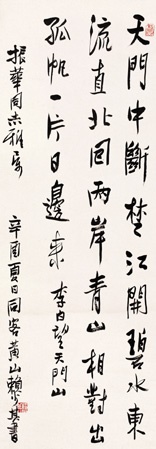 天門中斷楚江開碧水東
流直北回兩岸青山相對出
孤帆一片日邊來 李白望天門山
振華同志雅屬 辛酉夏日同客黃山賴少其書